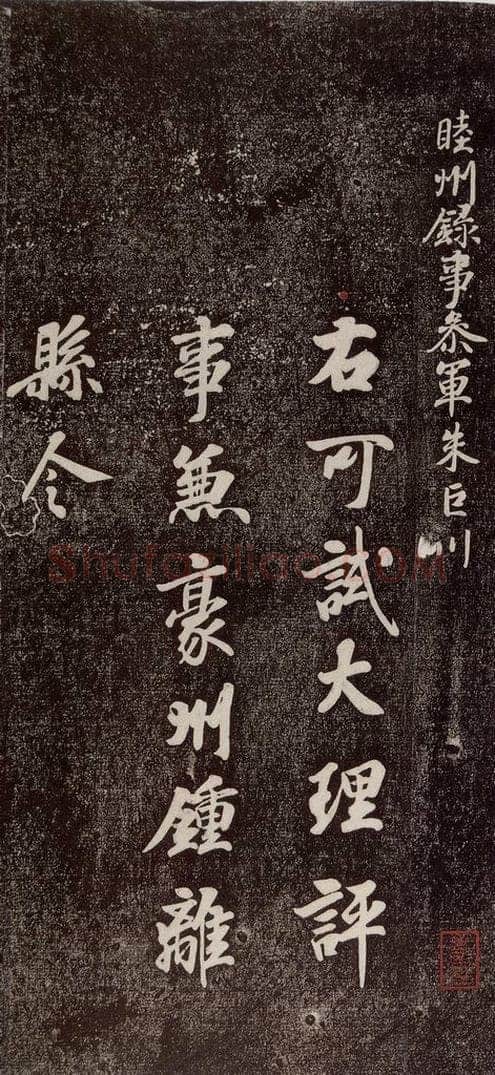 睦州録事叅軍朱巨川
右可試大理評
事兼豪州鍾離
縣令
Shufaziliao.COM